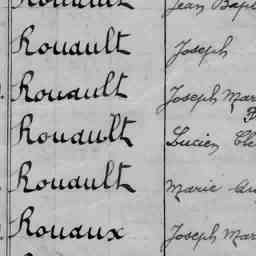 Rouault Jean Bap
Rouault Joseph
Rouault Joseph Mar
Rouault Lucien Cle
Rouault Marie
Rouaux Joseph Mar